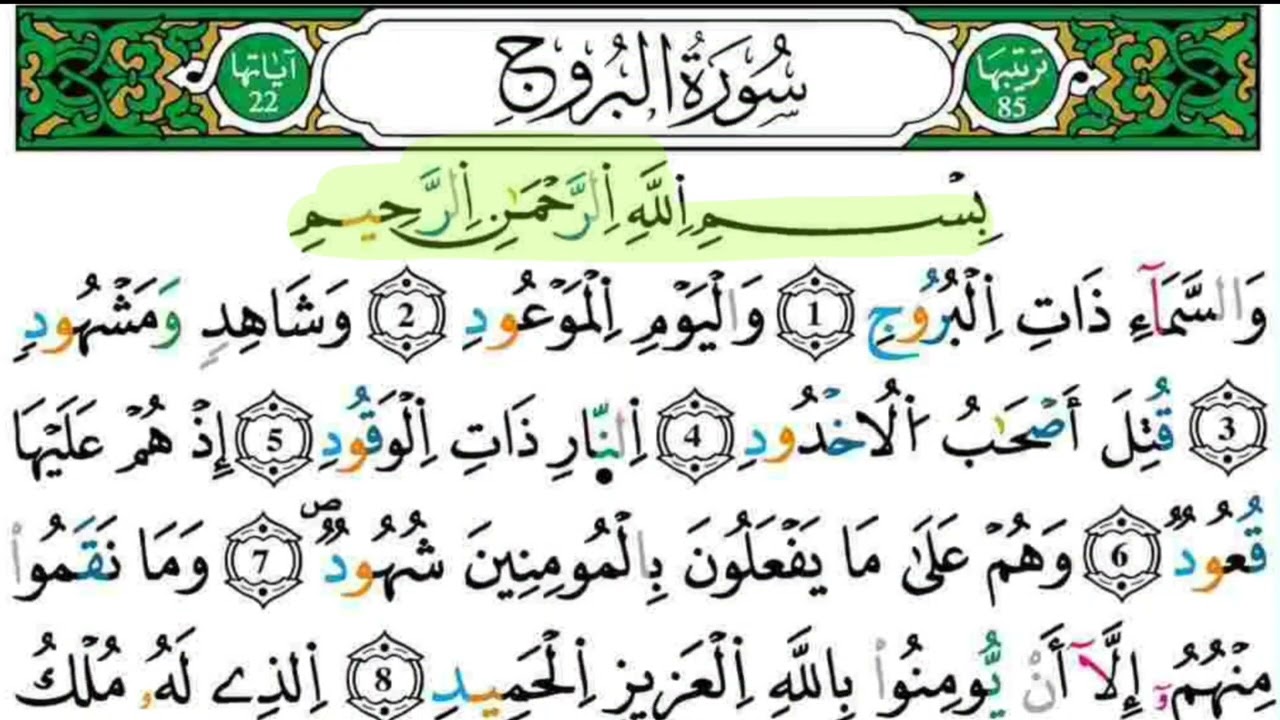 ترتيبها 85 سُورَةُ البُرُوجِ آياتها 22
بِسْمِ اِ۬للَّهِ اِ۬لرَّحْمَٰنِ اِ۬لرَّحِيمِ
وَالسَّمَآءِ ذَاتِ اِ۬لْبُرُوجِ 1 وَالْيَوْمِ اِ۬لْمَوْعُودِ 2 وَشَاهِدٍ وَمَشْهُودٍ
3 قُتِلَ أَصْحَٰبُ اُ۬لُاخْدُودِ 4 اِ۬لنَّارِ ذَاتِ اِ۬لْوَقُودِ 5 إِذْ هُمْ عَلَيْهَا
قُعُودٌ 6 وَهُمْ عَلَىٰ مَا يَفْعَلُونَ بِالْمُومِنِينَ شُهُودٌ ص 7 وَمَا نَقَمُواْ
مِنْهُمُۥٓ إِلَّآ أَنْ يُّومِنُواْ بِاللَّهِ اِ۬لْعَزِيزِ اِ۬لْحَمِيدِ 8 اِ۬لذِے لَهُۥ مُلْكُ